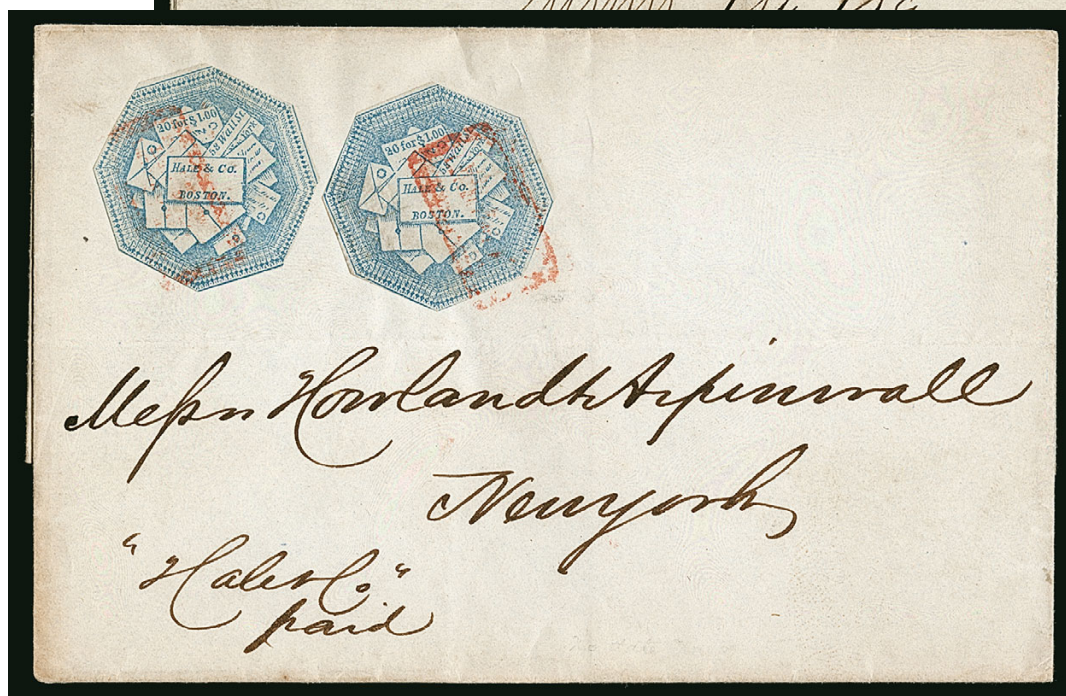 20 for $1.00
HALE & Co.
BOSTON.
20 for $1.00
HALE & Co.
BOSTON.
Messrs Howland & Aspinwall
New york
"Hale & Co"
paid